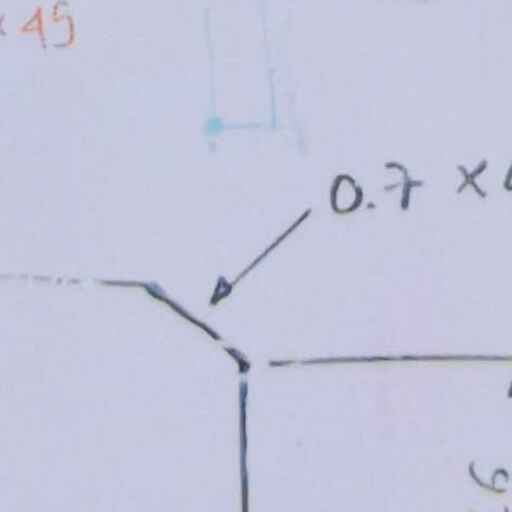 × 45
0.7 ×
6